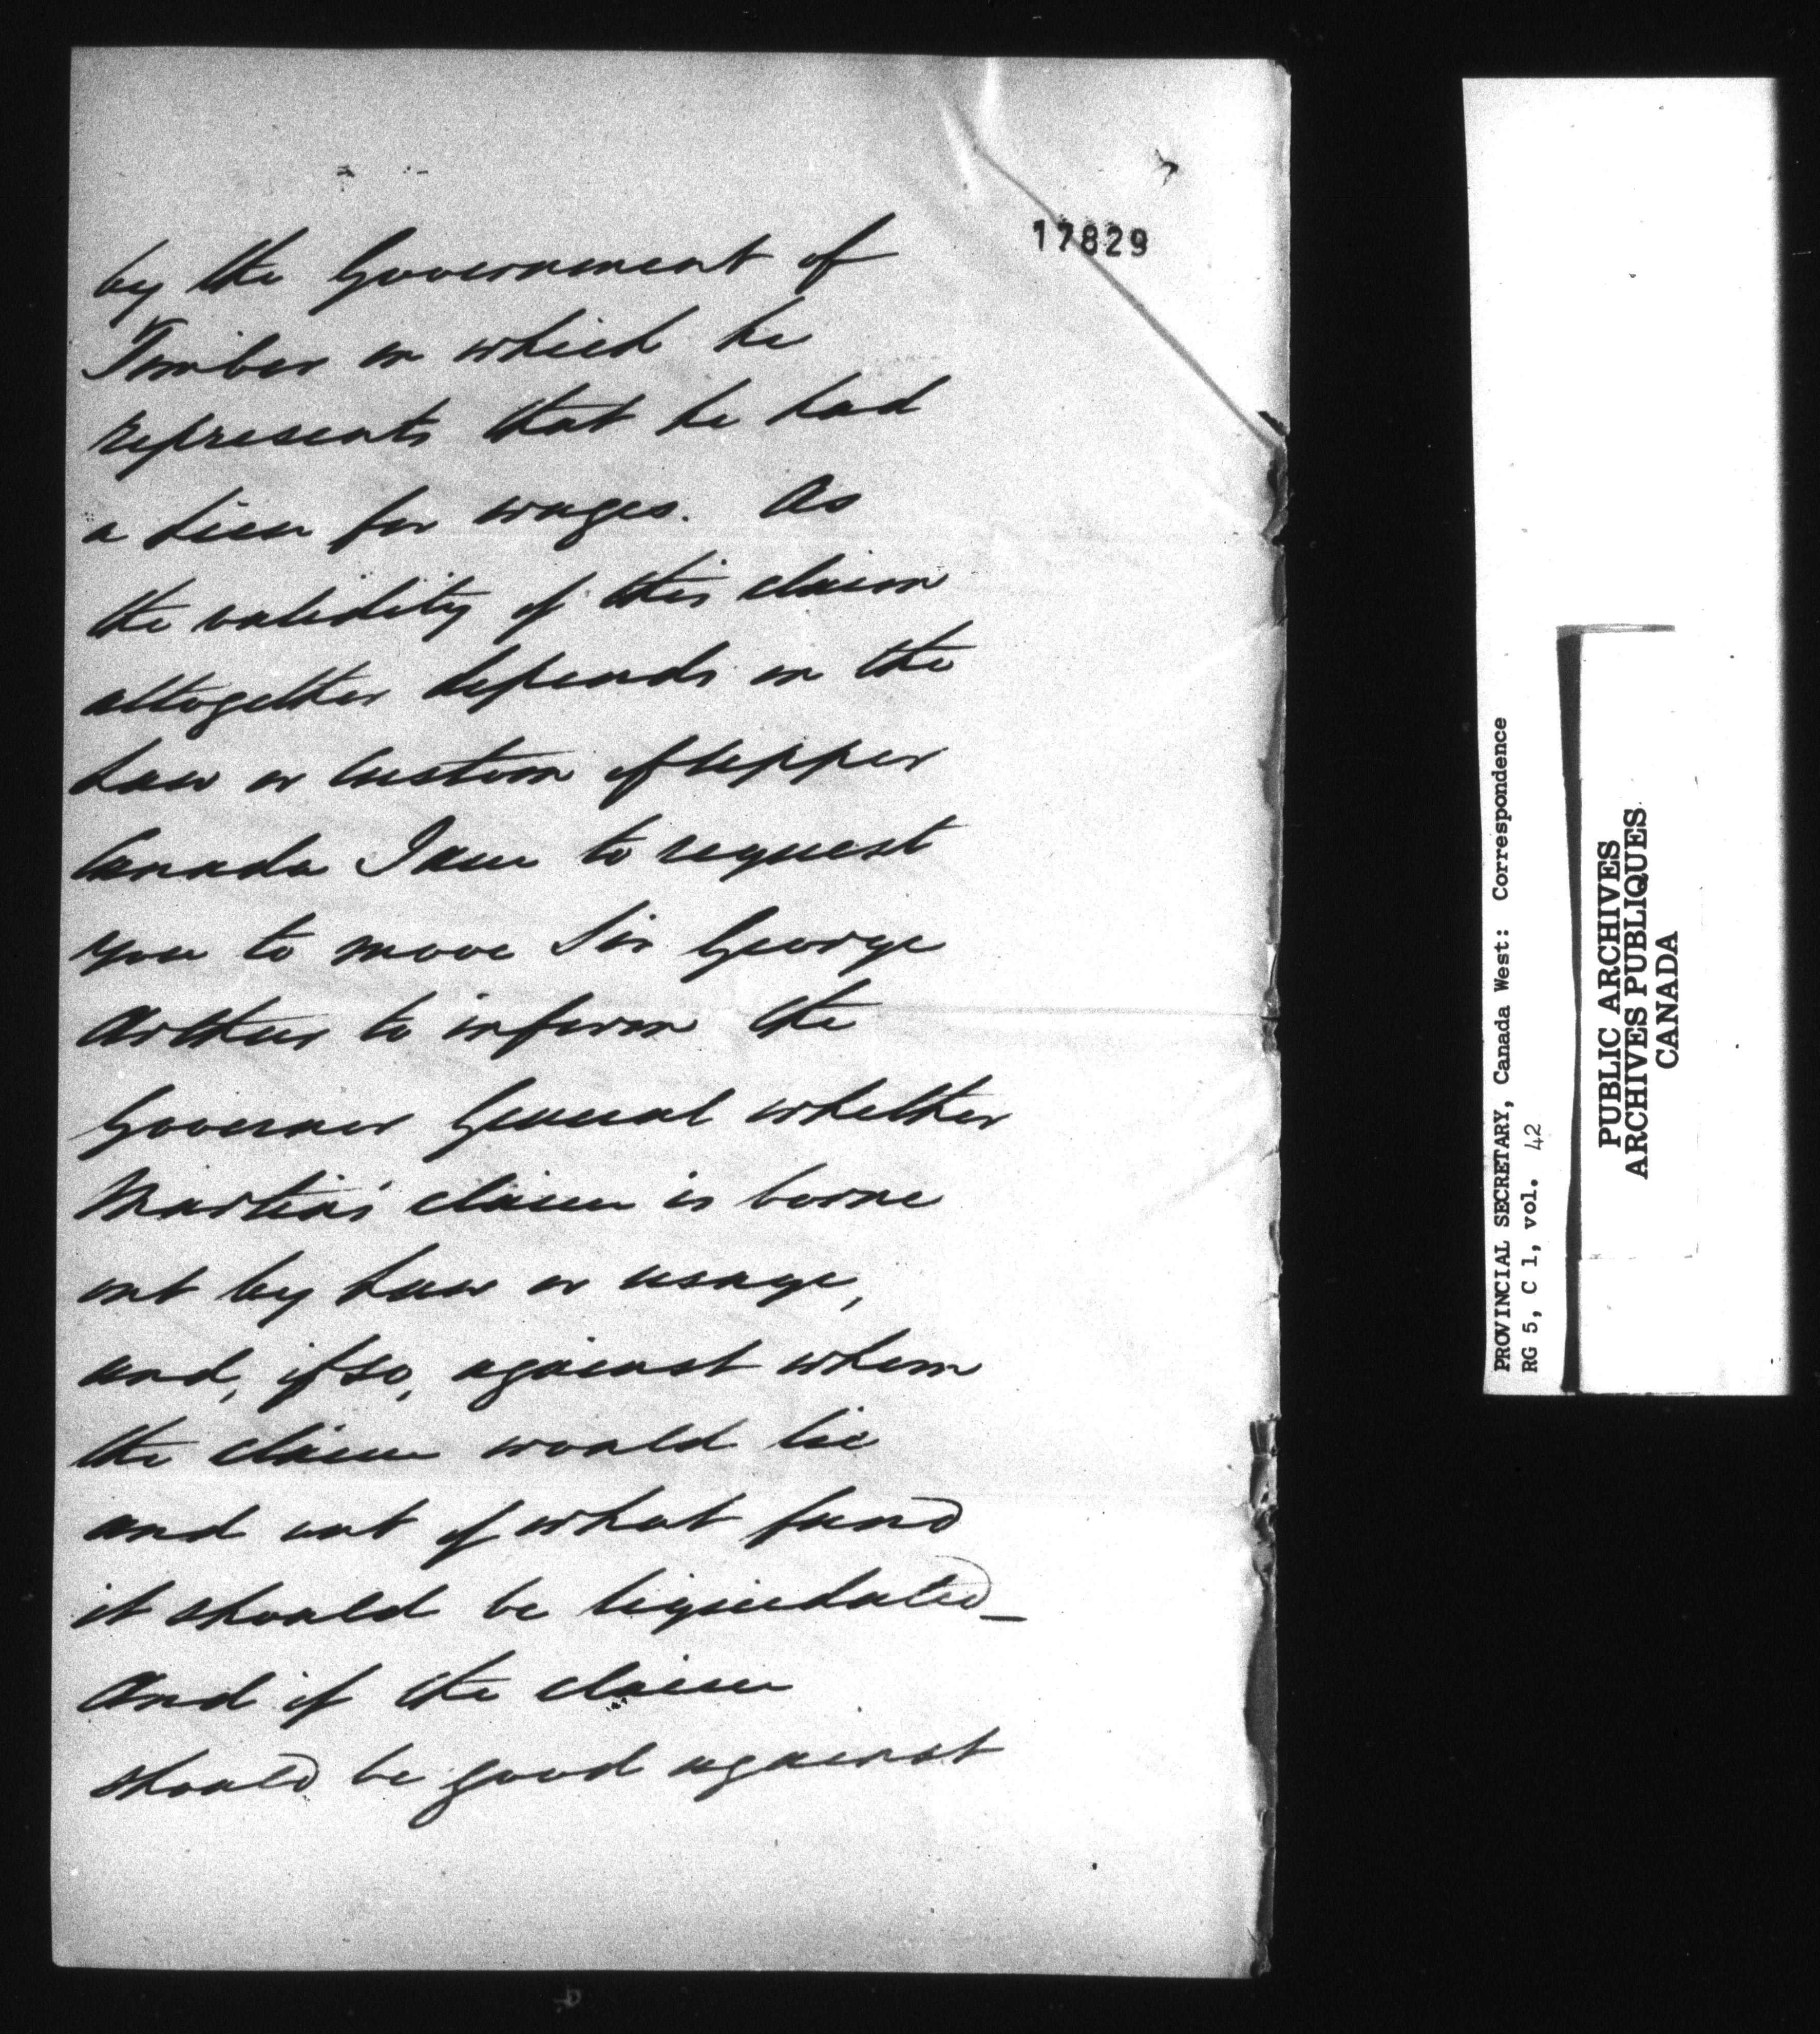 17829
by the Government of
Timber on which he
represents that he had
a Lien for wages. As
the validity of this claim
altogether depends on the
Law or Custom of Upper
Canada I am to request
you to move Sir George
Arthur to inform the
Governor General whether
Martin's claim is borne
out by Law or usage,
and, if so, against whom
the claim would lie
and out of what fund
it should be liquidated_
And if the claim
should be good against
PROVINCIAL SECRETARY, Canada West: Correspondence
RG 5, C 1, vol. 42
PUBLIC ARCHIVES
ARCHIVES PUBLIQUES
CANADA